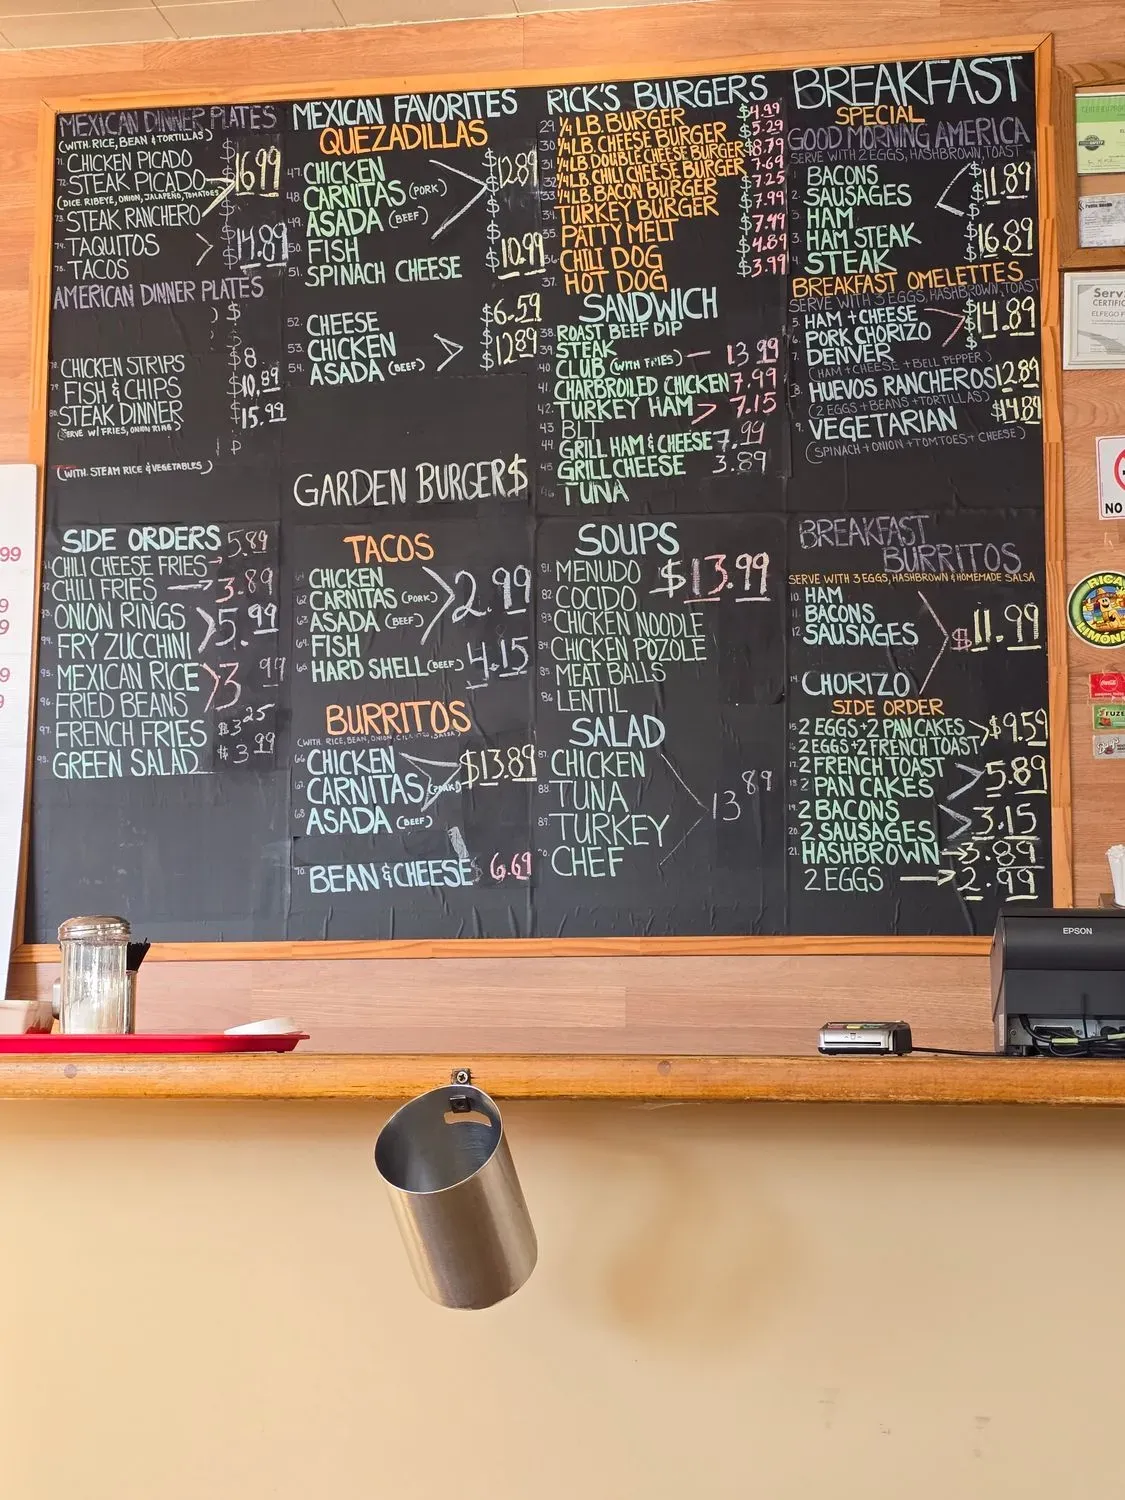 MEXICAN DINNER PLATES
(WITH RICE, BEAN & TORTILLAS)
71. CHICKEN PICADO
72. STEAK PICADO $16.99
(DICE RIBEYE, ONION, JALAPEÑO, TOMATOES)
73. STEAK RANCHERO
74. TAQUITOS $14.89
75. TACOS
AMERICAN DINNER PLATES
CHICKEN STRIPS $8.
79. FISH & CHIPS $10.89
80. STEAK DINNER $15.99
(SERVE W/ FRIES, ONION RING)
(WITH STEAM RICE & VEGETABLES)
SIDE ORDERS 5.89
CHILI CHEESE FRIES
92. CHILI FRIES 3.89
93. ONION RINGS 5.99
94. FRY ZUCCHINI
95. MEXICAN RICE 3.99
96. FRIED BEANS
97. FRENCH FRIES $3.25
98. GREEN SALAD $3.99
MEXICAN FAVORITES
QUEZADILLAS
47. CHICKEN $12.89
48. CARNITAS (PORK)
49. ASADA (BEEF)
50. FISH $10.99
51. SPINACH CHEESE
52. CHEESE $6.59
53. CHICKEN $12.89
54. ASADA (BEEF)
GARDEN BURGER $
TACOS
61. CHICKEN 2.99
62. CARNITAS (PORK)
63. ASADA (BEEF)
64. FISH 4.15
65. HARD SHELL (BEEF)
BURRITOS
66. CHICKEN $13.89
67. CARNITAS (PORK)
68. ASADA (BEEF)
70. BEAN & CHEESE $6.69
RICK'S BURGERS
29. 1/4 LB. BURGER $4.99
30. 1/4 LB. CHEESE BURGER $5.29
31. 1/4 LB DOUBLE CHEESE BURGER $8.79
32. 1/4 LB. CHILI CHEESE BURGER 7.69
33. 1/4 LB. BACON BURGER $7.25
34. TURKEY BURGER $7.99
35. PATTY MELT $7.49
36. CHILI DOG $4.89
37. HOT DOG $3.99
SANDWICH
38. ROAST BEEF DIP
39. STEAK 13.99
40. CLUB (WITH FRIES)
41. CHARBROILED CHICKEN 7.99
42. TURKEY HAM 7.15
43. BLT
44. GRILL HAM & CHEESE 7.99
45. GRILL CHEESE 3.89
46. TUNA
SOUPS
81. MENUDO $13.99
82. COCIDO
83. CHICKEN NOODLE
84. CHICKEN POZOLE
85. MEAT BALLS
86. LENTIL
SALAD
87. CHICKEN 13.89
88. TUNA
89. TURKEY
90. CHEF
BREAKFAST
SPECIAL
GOOD MORNING AMERICA
SERVE WITH 2 EGGS, HASHBROWN, TOAST
BACONS $11.89
2. SAUSAGES
3. HAM
3. HAM STEAK $16.89
4. STEAK
BREAKFAST OMELETTES
SERVE WITH 3 EGGS, HASHBROWN, TOAST
5. HAM + CHEESE $14.89
6. PORK CHORIZO
7. DENVER
(HAM + CHEESE + BELL PEPPER)
8. HUEVOS RANCHEROS 12.89
(2 EGGS + BEANS + TORTILLAS)
9. VEGETARIAN $14.89
(SPINACH + ONION + TOMTOES + CHEESE)
BREAKFAST
BURRITOS
SERVE WITH 3 EGGS, HASHBROWN & HOMEMADE SALSA
10. HAM
11. BACONS $11.99
12. SAUSAGES
14. CHORIZO
SIDE ORDER
15. 2 EGGS + 2 PAN CAKES $9.59
16. 2 EGGS + 2 FRENCH TOAST
17. 2 FRENCH TOAST 5.89
18. 2 PAN CAKES
19. 2 BACONS 3.15
20. 2 SAUSAGES
21. HASHBROWN 3.89
2 EGGS 2.99
EPSON
NO